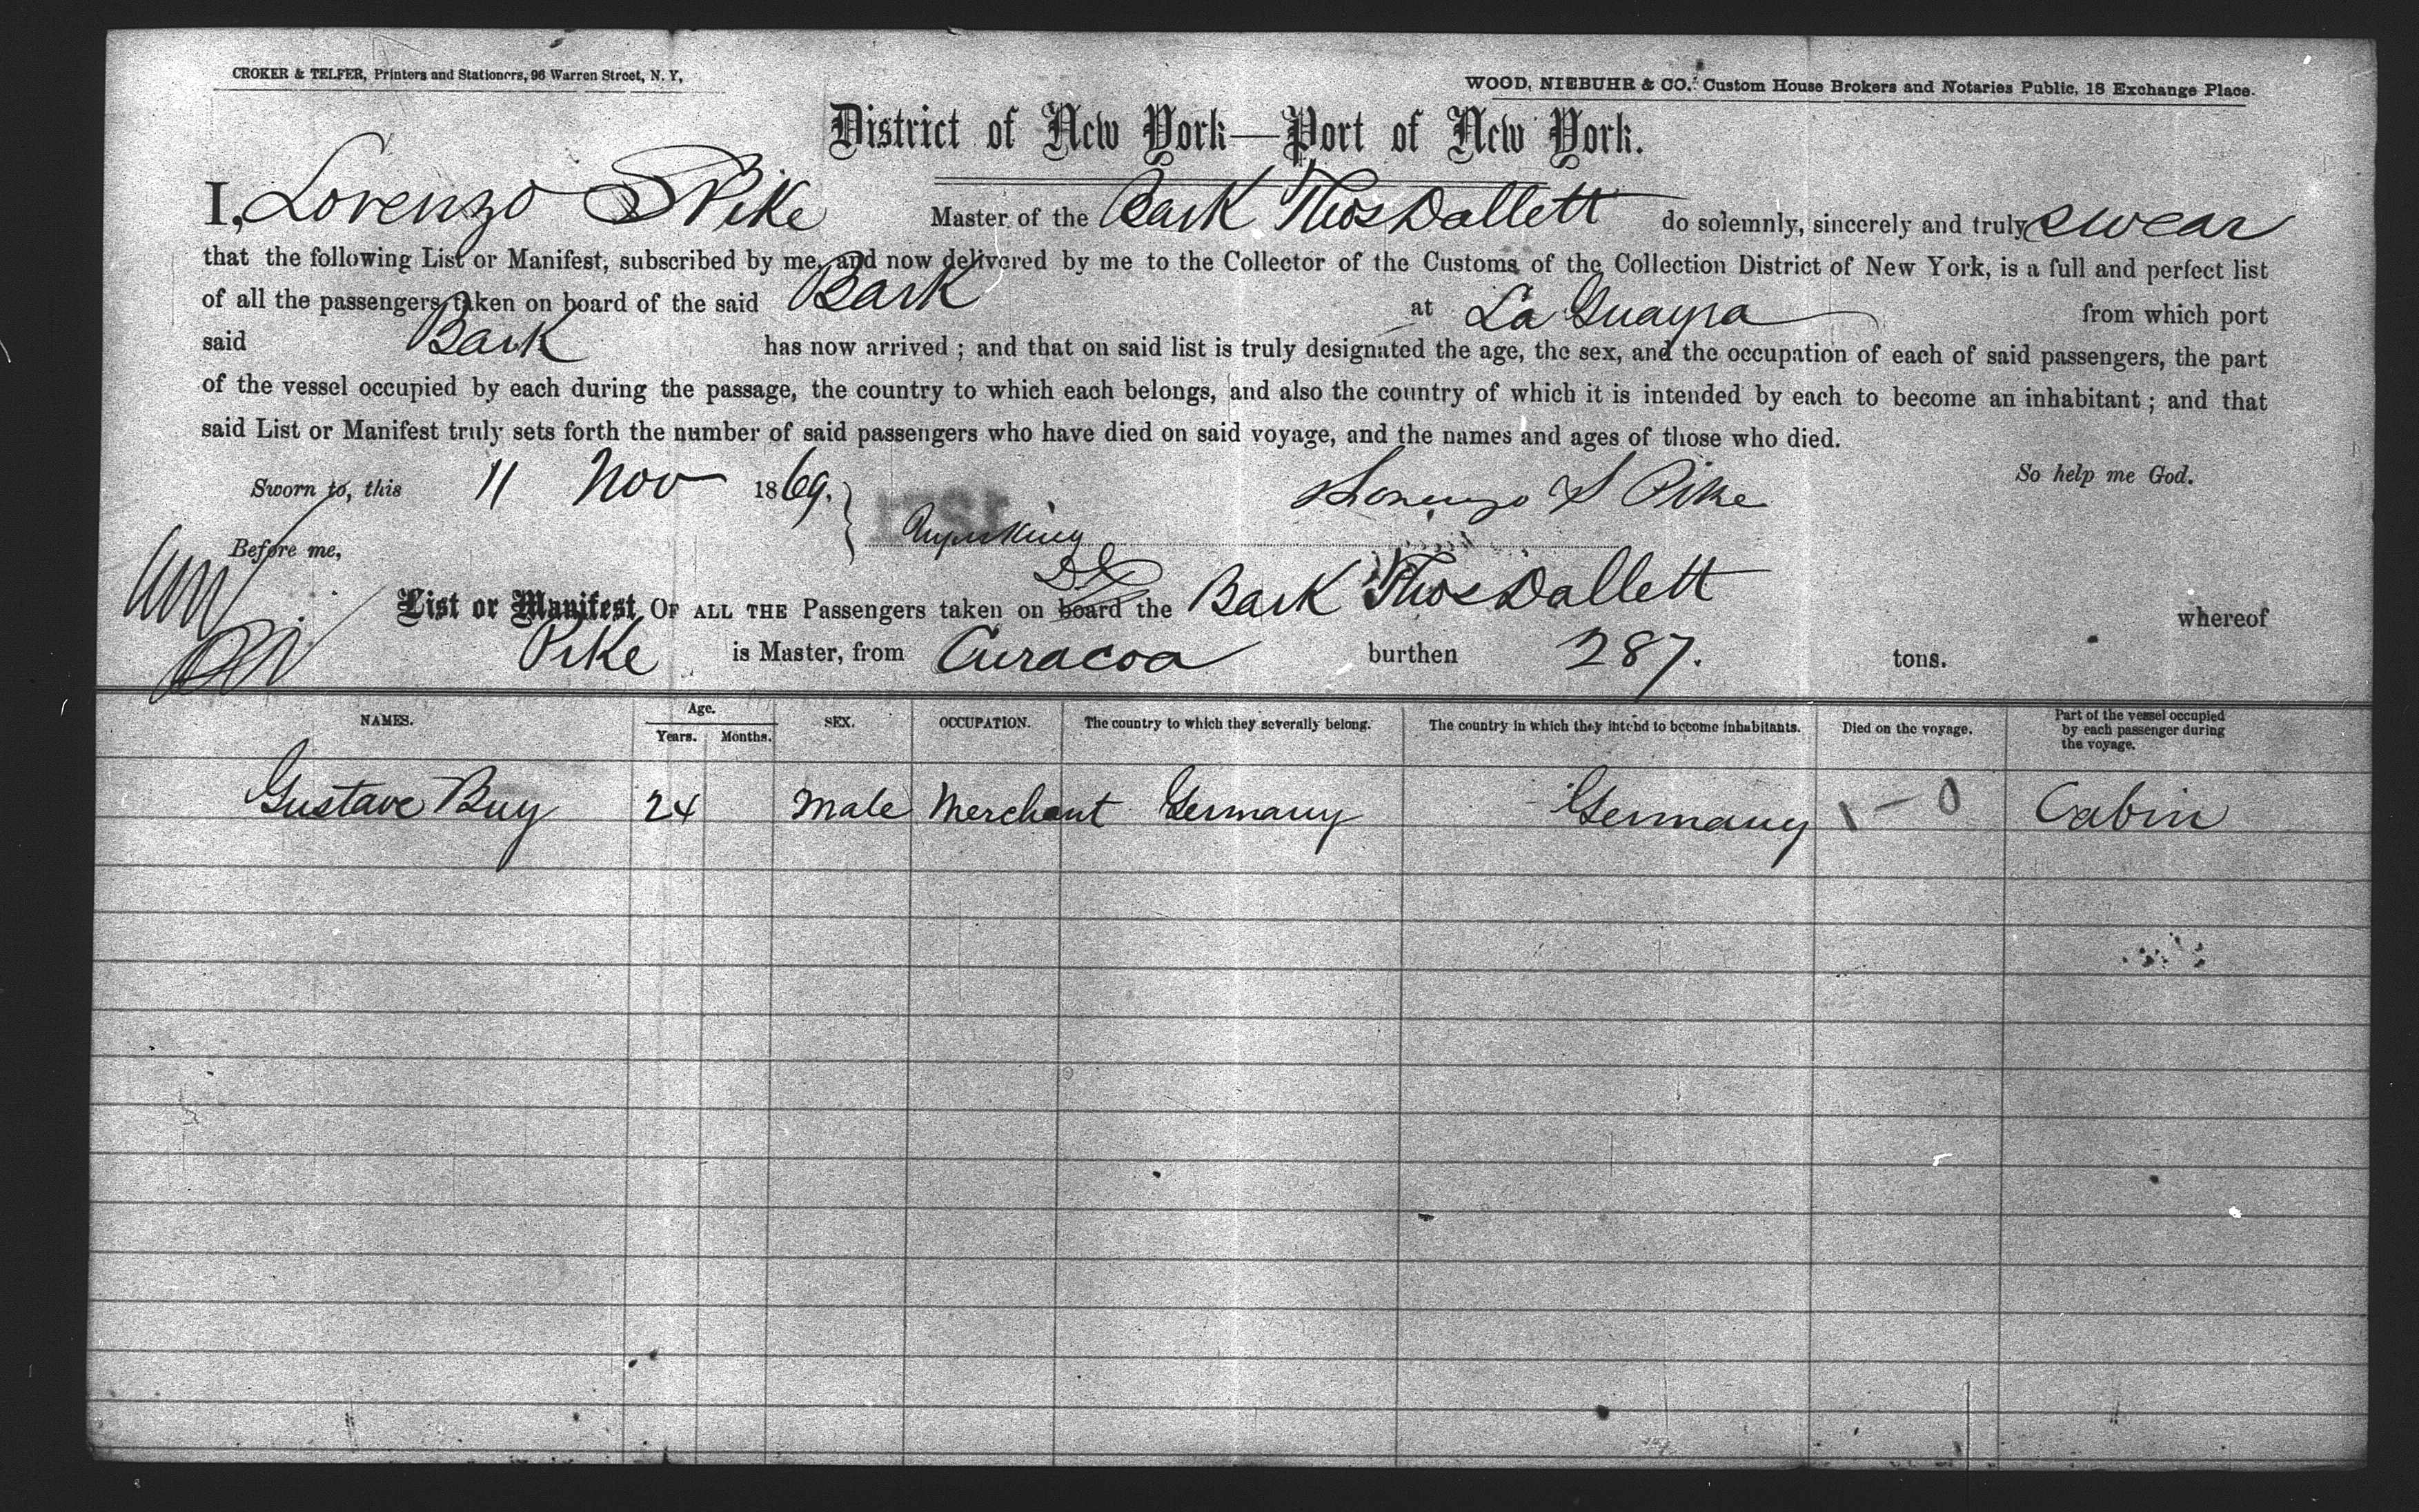 CROKER & TELFER, Printers and Stationers, 96 Warren Street, N. Y,
WOOD, NIEBUHR & CO., Custom House Brokers and Notaries Public, 18 Exchange Place.
District of New York—Port of New York.
I, Lorenzo S Pike Master of the Bark Thos Dallett do solemnly, sincerely and truly swear
that the following List or Manifest, subscribed by me, and now delivered by me to the Collector of the Customs of the Collection District of New York, is a full and perfect list
of all the passengers taken on board of the said Bark at La Guayra from which port
said Bark has now arrived ; and that on said list is truly designated the age, the sex, and the occupation of each of said passengers, the part
of the vessel occupied by each during the passage, the country to which each belongs, and also the country of which it is intended by each to become an inhabitant ; and that
said List or Manifest truly sets forth the number of said passengers who have died on said voyage, and the names and ages of those who died.
Sworn to, this 11 Nov 1869. Lorenzo S Pike So help me God.
Before me,
List or Manifest OF ALL THE Passengers taken on board the Bark Thos Dallett whereof
Pike is Master, from Curacoa burthen 287. tons.
NAMES. Age. Years. Months. SEX. OCCUPATION. The country to which they severally belong. The country in which they intend to become inhabitants. Died on the voyage. Part of the vessel occupied by each passenger during the voyage.
Gustave Buy 24 Male Merchant Germany Germany 1 - 0 Cabin